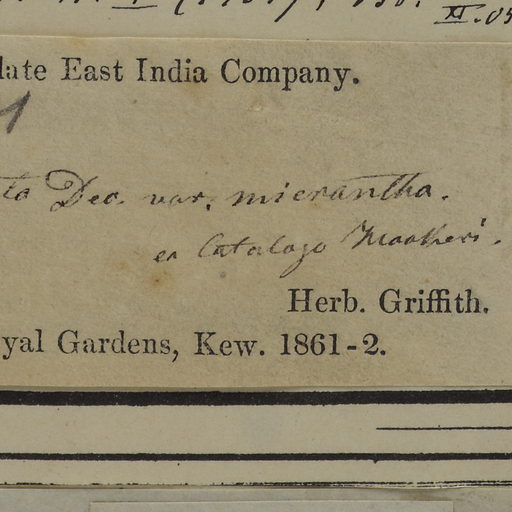 XI.05
late East India Company.
1
ta Dec. var. micrantha.
ex Catalogo Hookeri.
Herb. Griffith.
yal Gardens, Kew. 1861-2.